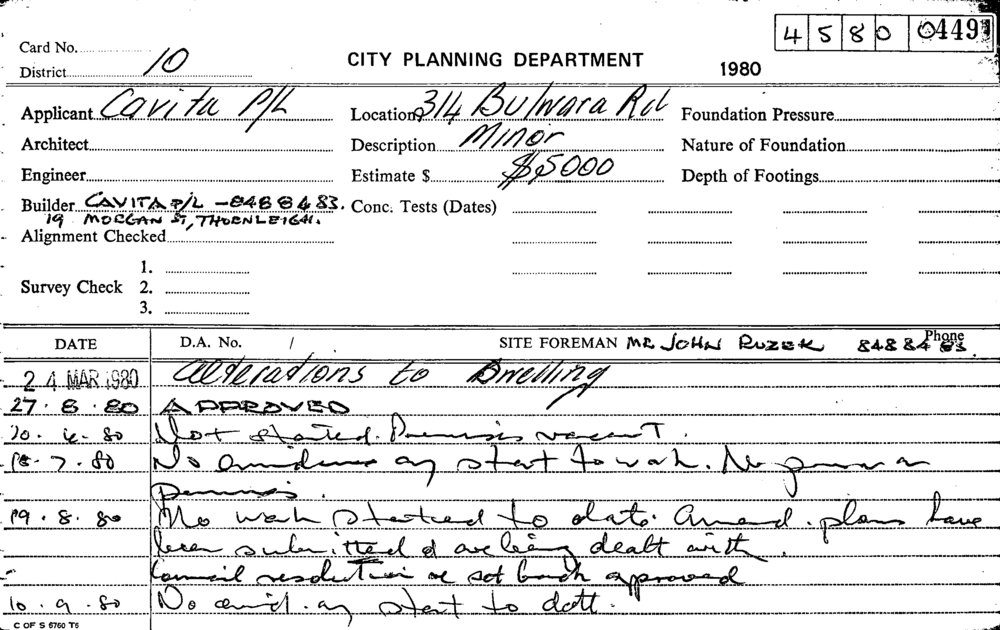 4580 04491
Card No.
District 10
CITY PLANNING DEPARTMENT
1980
Applicant Cavita P/L
Location 314 Bulwara Rd
Foundation Pressure
Architect
Description Minor
Nature of Foundation
Engineer
Estimate $ $5000
Depth of Footings
Builder CAVITA P/L - 848 84 83.
19 MORGAN ST, THORNLEIGH.
Conc. Tests (Dates)
Alignment Checked
Survey Check
1.
2.
3.
DATE
D.A. No. /
SITE FOREMAN MR JOHN RUZEK
Phone 848 84 83.
24 MAR 1980 Alterations to Dwelling
27.8.80 APPROVED
10.6.80 Not started. Premises vacant.
18.7.80 No evidence any start to work. No person on
premises.
19.8.80 No work started to date. Amend. plans have
been submitted & are being dealt with.
Council resolution re set back approved
10.9.80 No evid. any start to date.
C OF S 6760 T6